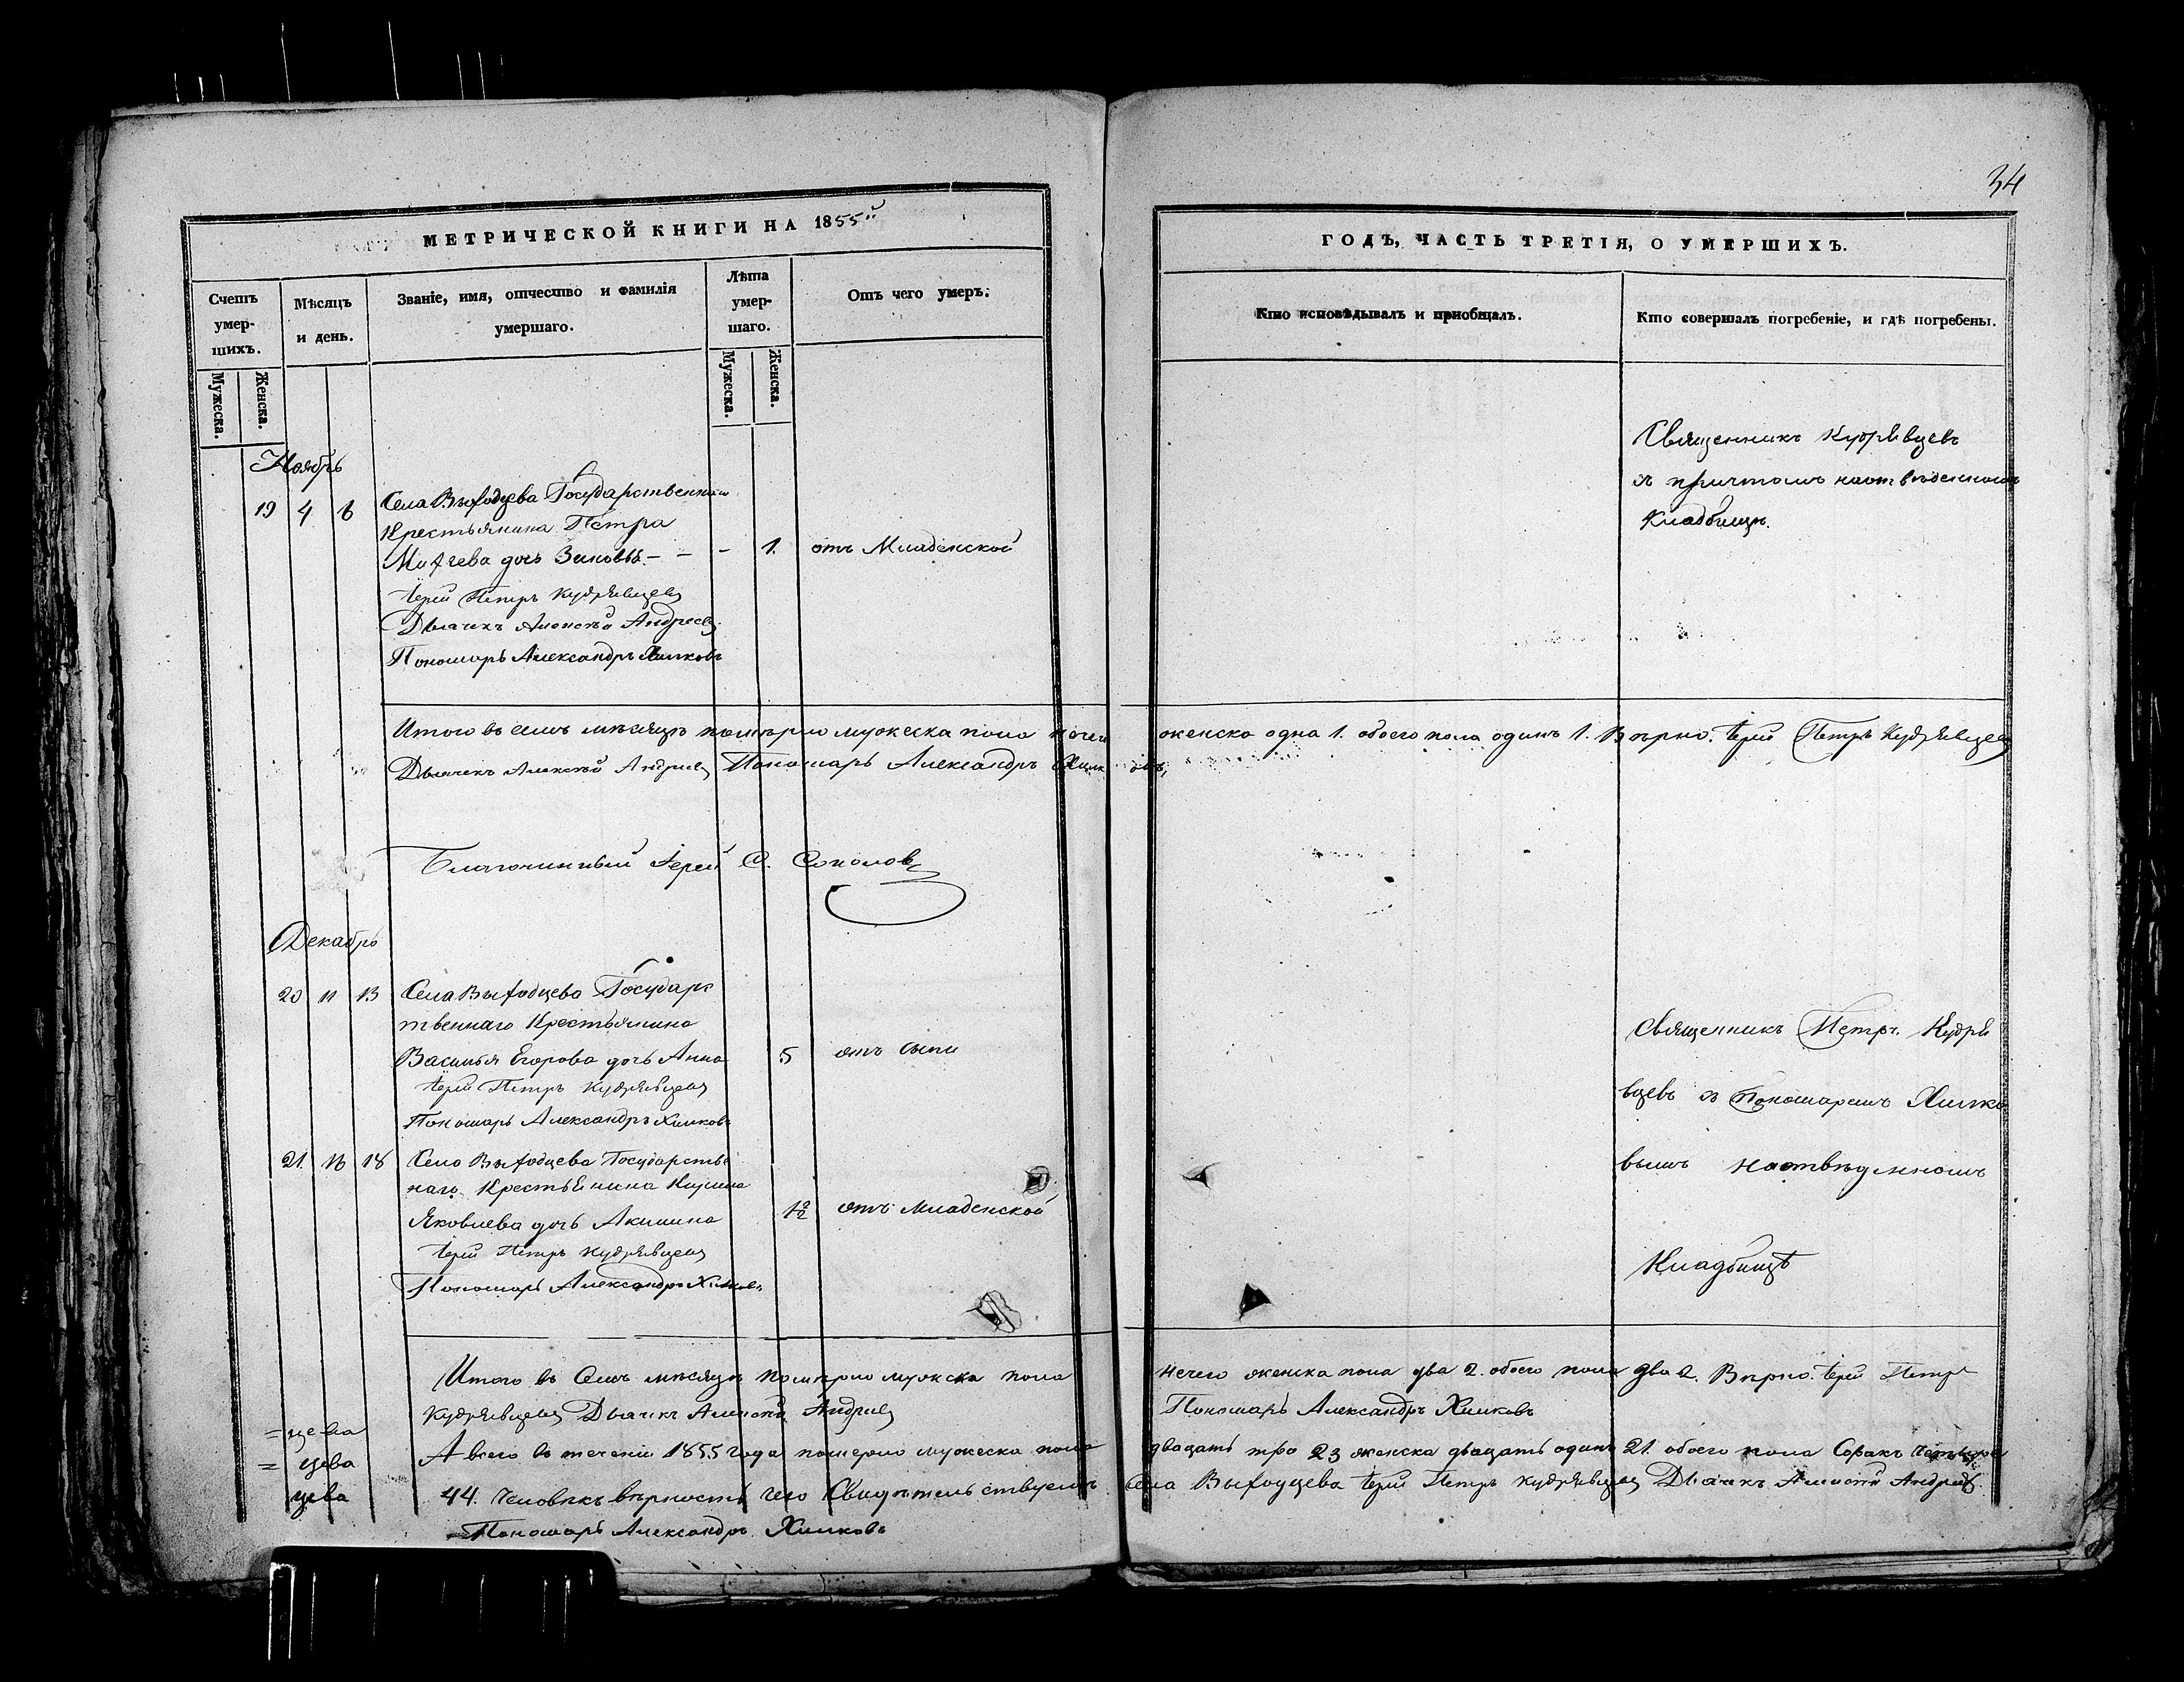 34
МЕТРИЧЕСКОЙ КНИГИ НА 1855й
ГОДЪ, ЧАСТЬ ТРЕТІЯ, О УМЕРШИХЪ.
Счетъ умер-
шихъ.
Мужеска.
Женска.
Мѣсяцъ
и день.
Званіе, имя, отчество и фамилія
умершаго.
Лѣта
умер-
шаго.
Мужеска.
Женска.
Отъ чего умеръ.
Кто исповѣдывалъ и пріобщалъ.
Кто совершалъ погребеніе, и гдѣ погребены.
Ноябрь
19 4 6 Села Выходцева Государственнаго
Крестьянина Петра
Михеева дочь Зиновья - - - 1. отъ Младенской
Іерей Петръ Кудрявцевъ
Дьячекъ Алексѣй Андреевъ
Пономарь Александръ Хилковъ
Священникъ Кудрявцевъ
съ причтомъ на отведенномъ
Кладбищѣ.
Итого въ семъ мѣсяцѣ померло мужеска пола нечего женска одна 1. обоего пола одинъ 1. Вѣрно. Іерей Петръ Кудрявцевъ
Дьячекъ Алексѣй Андреевъ Пономарь Александръ Хилковъ,
Благочинный Іерей С. Соколовъ
Декабрь
20 11 13 Села Выходцева Государс
твеннаго Крестьянина
Василья Егорова дочь Анна 5 отъ сыпи
Іерей Петръ Кудрявцевъ
Пономарь Александръ Хилковъ
21. 16 18 Села Выходцева Государстве
наго Крестьянина
Яковлева дочь Акилина 1/2 отъ Младенской
Іерей Петръ Кудрявцевъ
Пономарь Александръ Хилковъ
Священникъ Петръ Кудря
вцевъ съ Пономаремъ Хилко
вымъ на отведенномъ
Кладбищѣ
Итого въ семъ мѣсяцѣ померло мужска пола нечего женска пола два 2. обоего пола два 2. Вѣрно. Іерей Петръ
Кудрявцевъ Дьячекъ Алексѣй Андреевъ Пономарь Александръ Хилковъ
А всего въ теченіи 1855 года померло мужеска пола двацать тро 23 женска двацать одинъ 21. обоего пола Сорокъ четыре
44. Человѣкъ вѣрность чего Свидѣтельствуемъ Села Выходцева Іерей Петръ Кудрявцевъ Дьячекъ Алексѣй Андреевъ.
Пономарь Александръ Хилковъ
= цева
= цева
цева